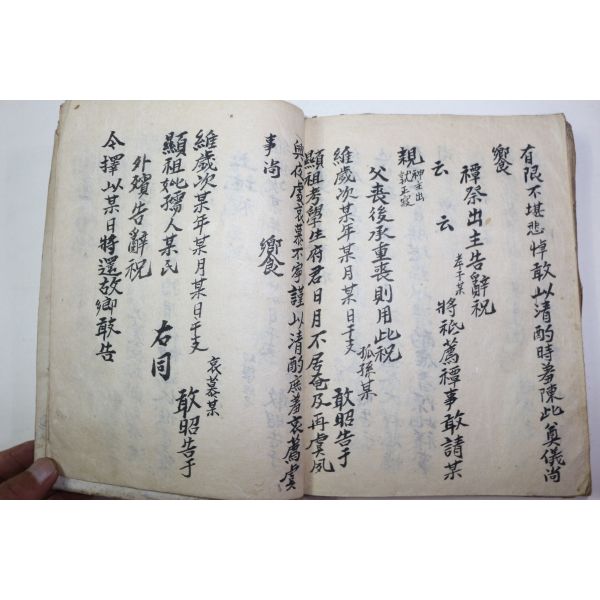 有限不堪悲悼敢以清酌時羞陳此奠儀尚
饗
禫祭出主告辭祝
云云 孝子某 將祗薦禫事敢請某
親 神主出就正寢
父喪後承重喪則用此祝
維歲次某年某月某日干支 孤孫某 敢昭告于
顯祖考學生府君日月不居奄及再虞夙
興夜處哀慕不寧謹以清酌庶羞哀薦虞
事尙 饗
維歲次某年某月某日干支 哀慕某 敢昭告于
顯祖妣孺人某氏 右同
外殯告辭祝
今擇以某日將還故鄉敢告